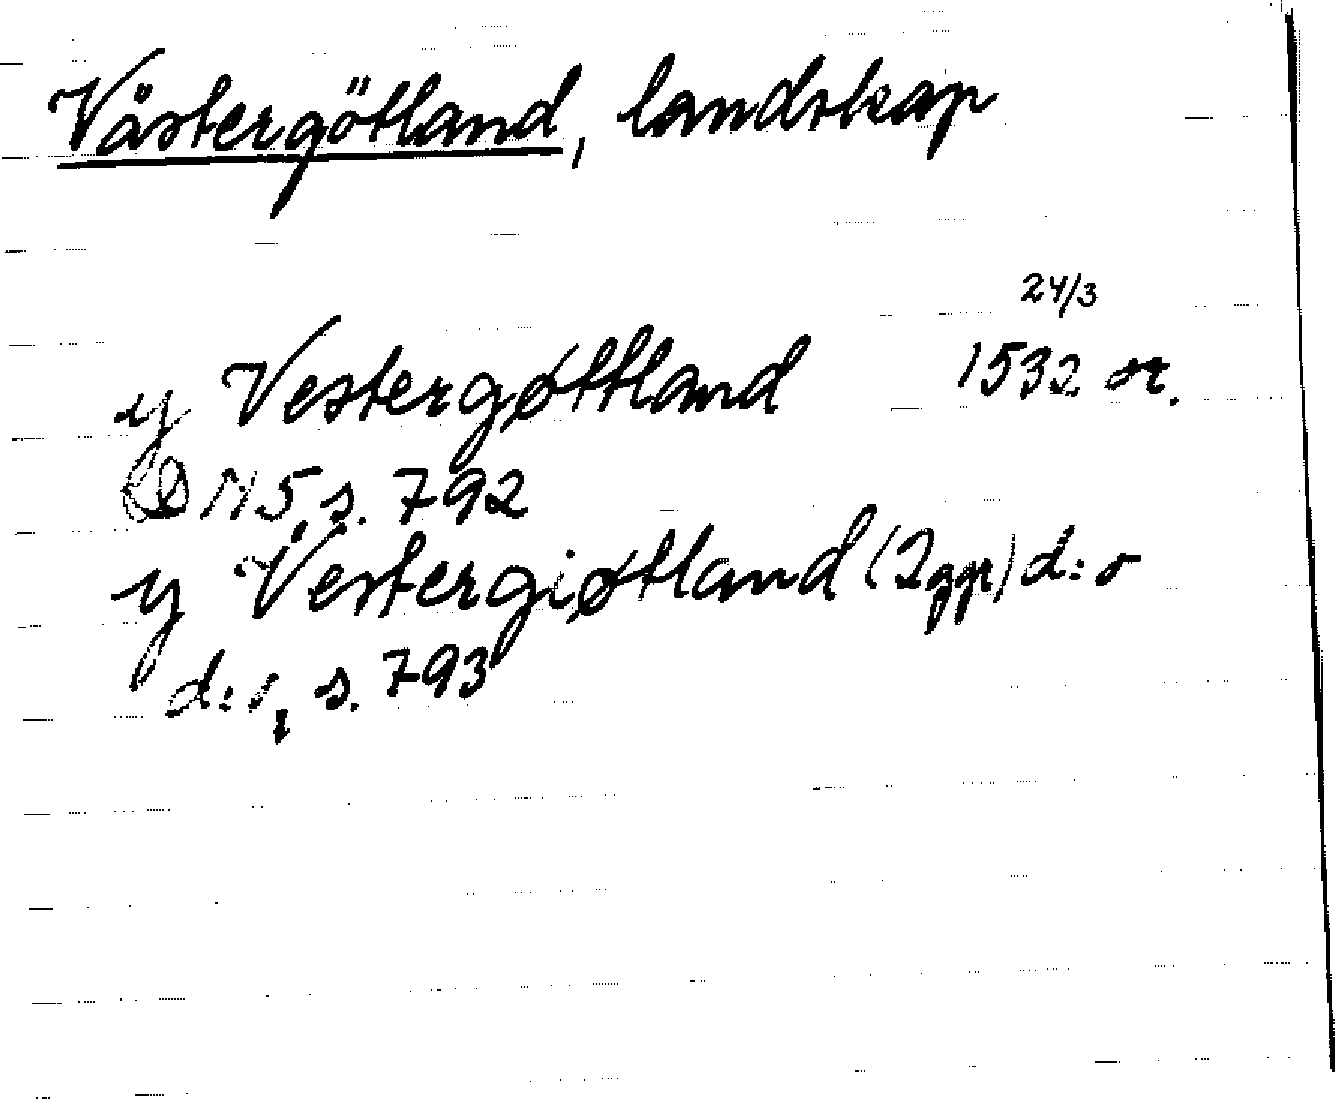 Västergötland, landskap
24/3
y Vestergøttland 1532 or.
DN 5, s. 792
y Vestergiøtland (2 ggr) d:o
d:o, s. 793